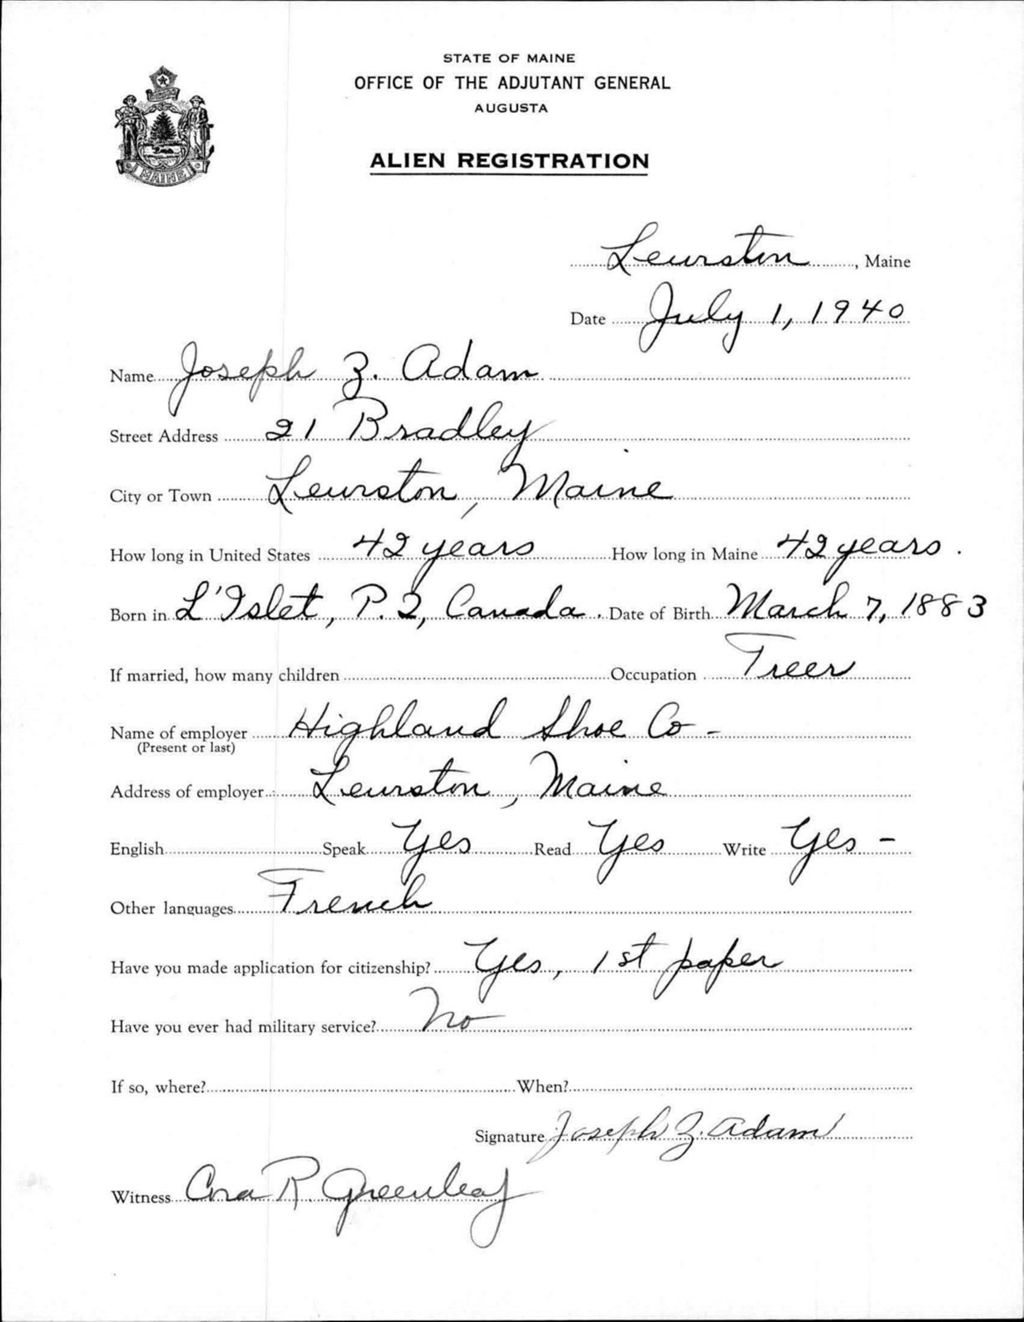 STATE OF MAINE
OFFICE OF THE ADJUTANT GENERAL
AUGUSTA
ALIEN REGISTRATION
MAINE
Lewiston, Maine
Date July 1, 1940
Name Joseph Z. Adam
Street Address 21 Bradley
City or Town Lewiston, Maine
How long in United States 42 years How long in Maine 42 years.
Born in L'Islet, P.Q, Canada. Date of Birth March 7, 1883
If married, how many children Occupation Treer
Name of employer Highland Shoe Co -
(Present or last)
Address of employer Lewiston, Maine
English Speak Yes Read Yes Write Yes -
Other languages French
Have you made application for citizenship? Yes, 1st paper
Have you ever had military service? No
If so, where? When?
Signature Joseph Z. Adam
Witness Cora R Greenleaf